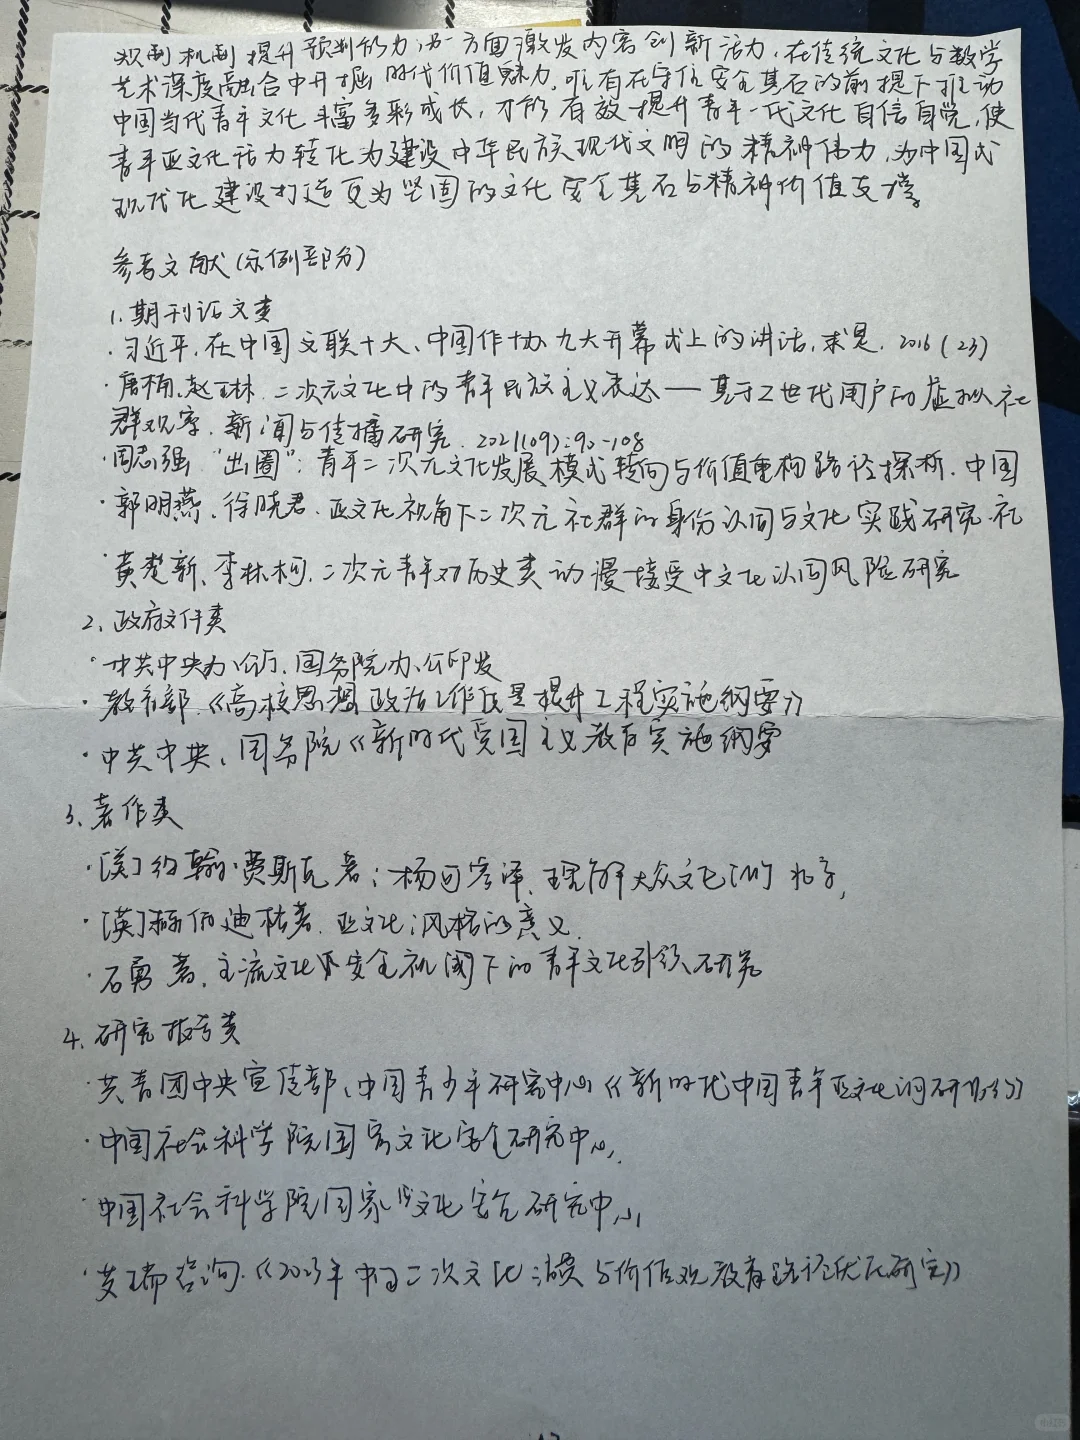 规制机制提升预判能力,另一方面激发内容创新活力,在传统文化与数字
艺术深度融合中开掘时代价值魅力,唯有在守住安全基石的前提下推动
中国当代青年文化丰富多彩成长,才能有效提升青年一代文化自信自觉,使
青年亚文化活力转化为建设中华民族现代文明的精神伟力,为中国式
现代化建设打造更为坚固的文化安全基石与精神价值支撑。
参考文献(示例部分)
1.期刊论文类
·习近平.在中国文联十大、中国作协九大开幕式上的讲话.求是.2016(23)
·席楠、赵玉琳.二次元文化中的青年民族主义表达——基于Z世代用户的虚拟社
群观察.新闻与传播研究.2021(09):90-108
·周志强 "出圈":青年二次元文化发展模式转向与价值重构路径探析.中国
·郭明燕、徐晓君.亚文化视角下二次元社群的身份认同与文化实践研究.社
·黄楚新、李林柯.二次元青年对历史类动漫接受中文化认同风险研究
2、政府文件类
·中共中央办公厅、国务院办公印发
·教育部.《高校思想政治工作质量提升工程实施纲要》
·中共中央、国务院《新时代爱国主义教育实施纲要
3、著作类
·[美]约翰·费斯克著;杨 译.理解大众文化[M]
·[英]赫伯迪格著.亚文化:风格的意义.
·石勇著.主流文化 安全视阈下的青年文化引领研究
4.研究报告类
·共青团中央宣传部、中国青少年研究中心《新时代中国青年亚文化调研报告》
·中国社会科学院国家文化安全研究中心.
·中国社会科学院国家 文化安全研究中心
·艾瑞咨询.《2023年中国二次文化消费与价值观教育路径优化研究》